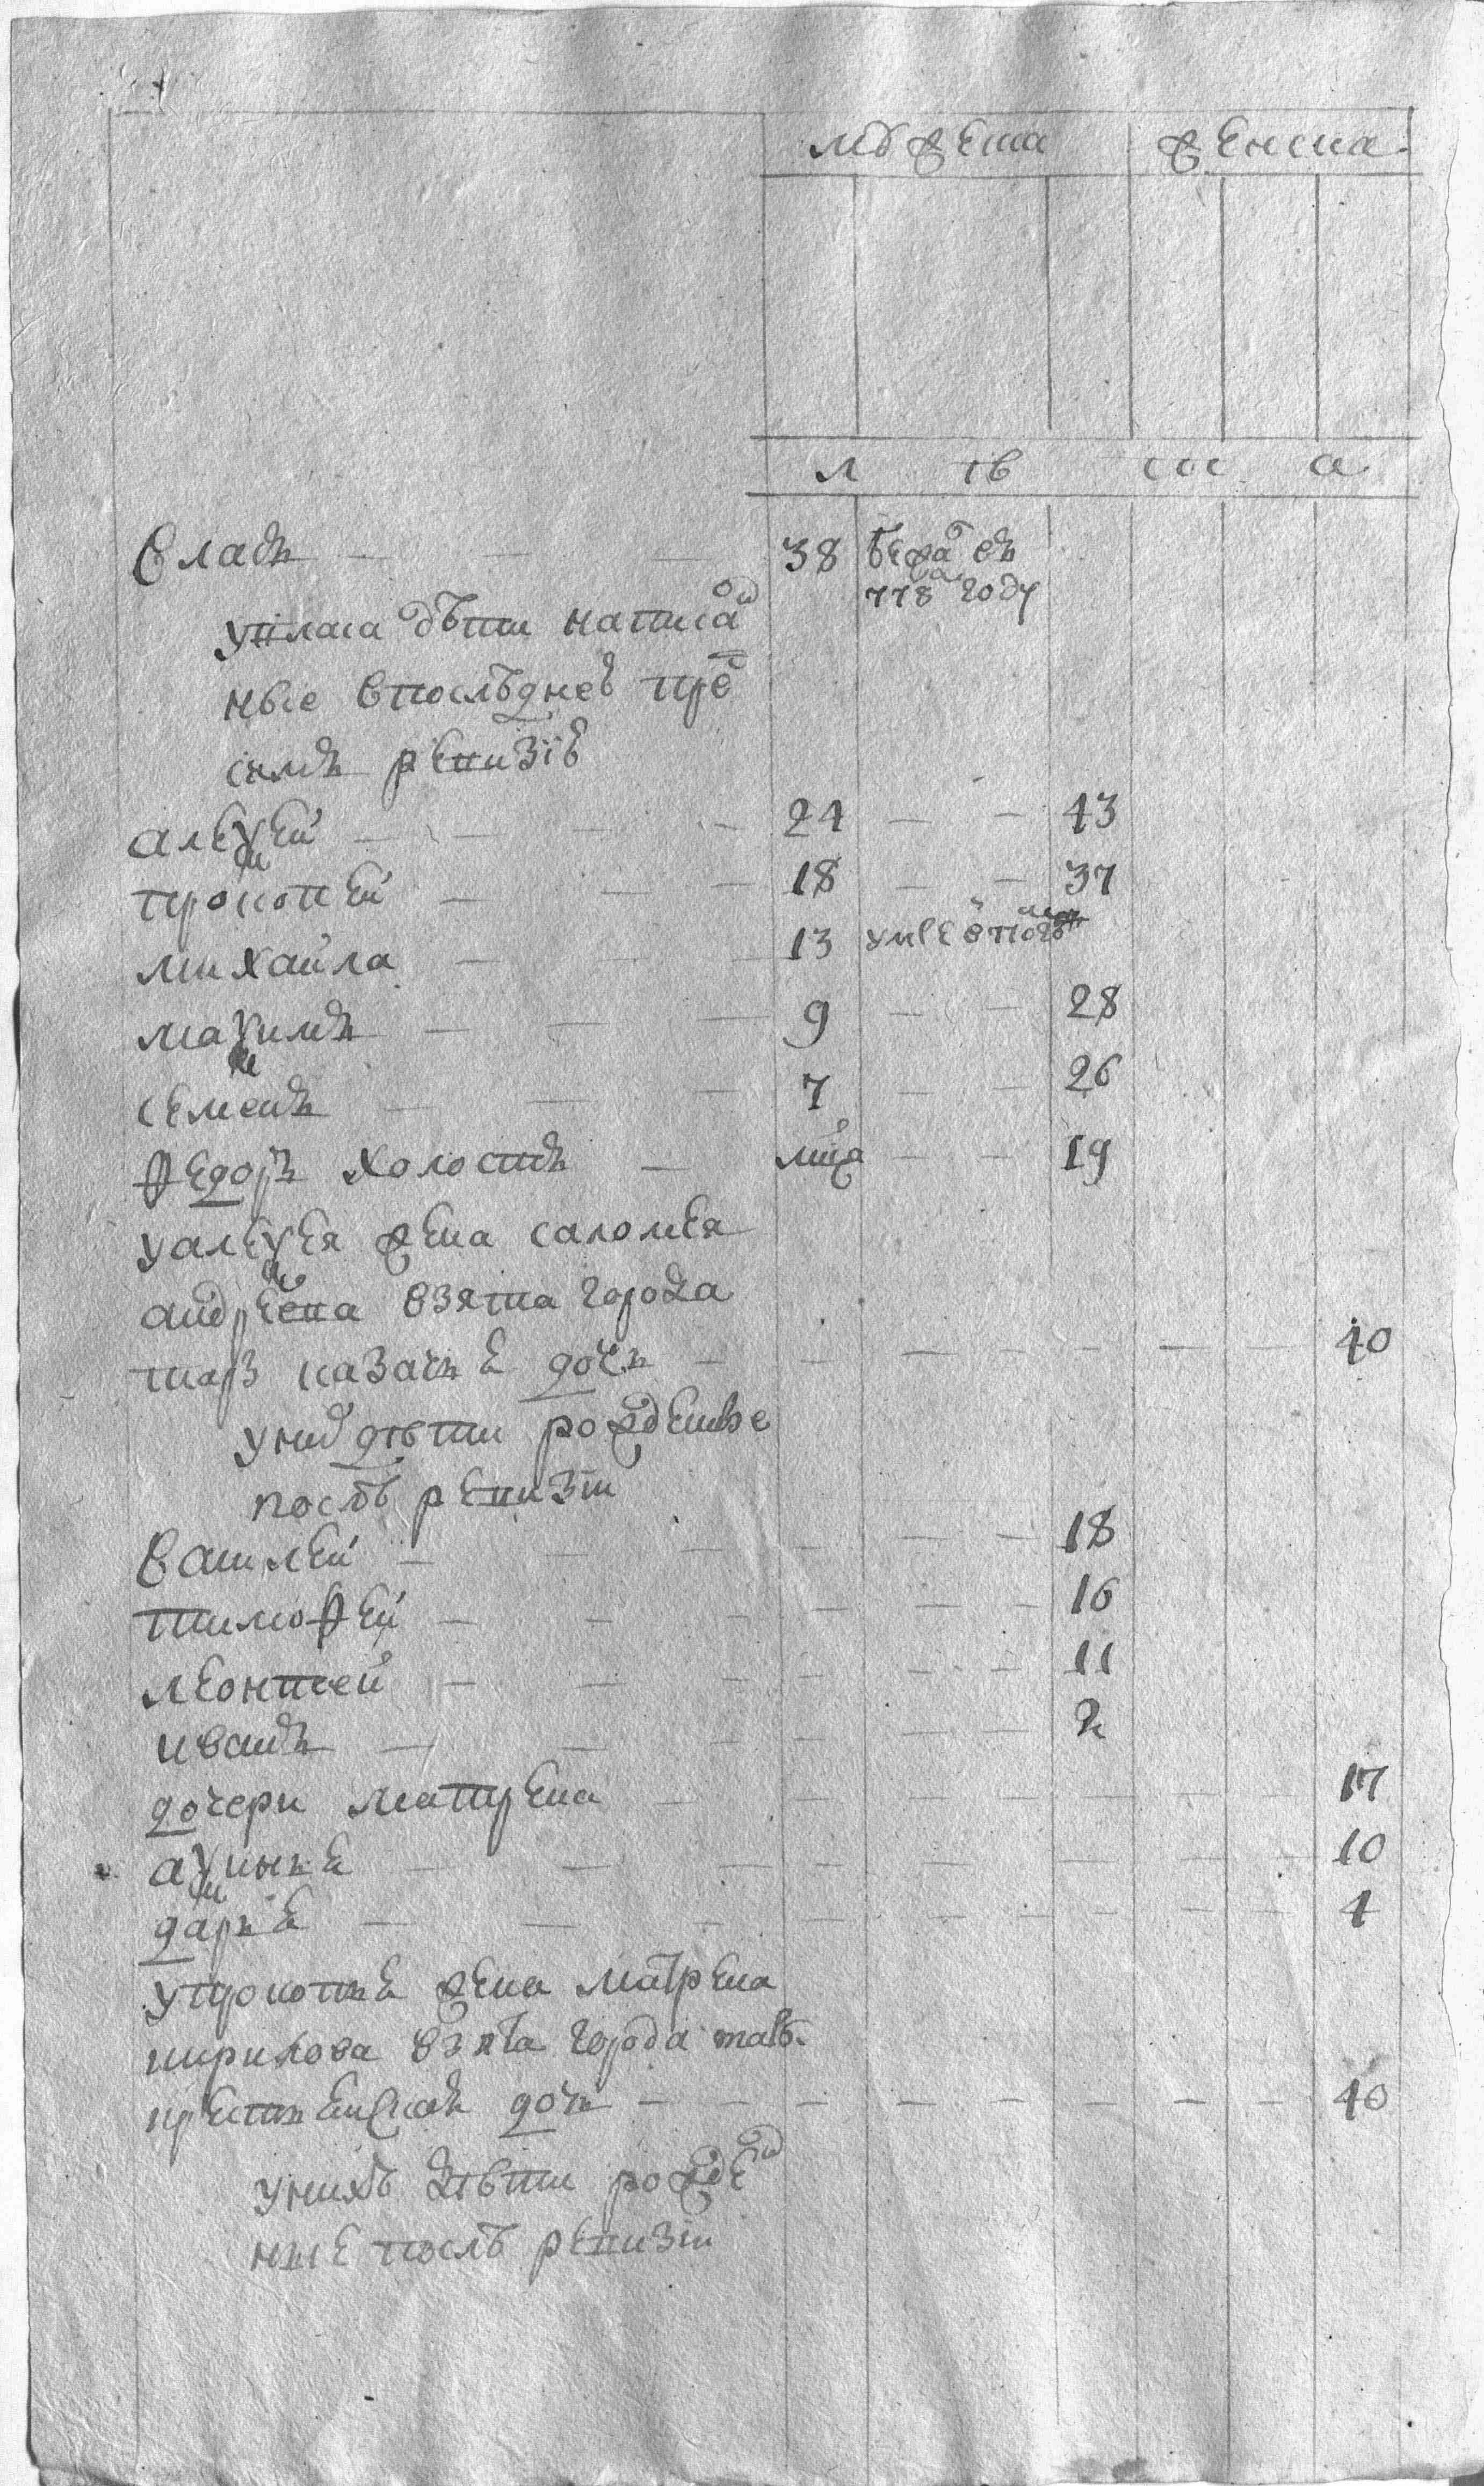 мужеска женска
л ѣ та
Власъ 38 бежа в
778 году
у власа дѣти написа
ные в последней пре
симъ ревизіи
алексей 24 43
прокопей 18 37
михайла 13 умре
максимъ 9 28
семенъ 7 26
федоръ холостъ 19
у алексея жена саломея
андреева взята города
тар казачья дочь 40
у них дѣти рожденые
послѣ ревизіи
василей 18
тимофей 16
леонтеей 11
иванъ 2
дочери матрена 17
аксинья 10
дарья 4
у прокопья жена матрена
кирилова взята города
крестьянскаѧ дочь 40
у нихъ дѣти рожде
ные послѣ ревизіи